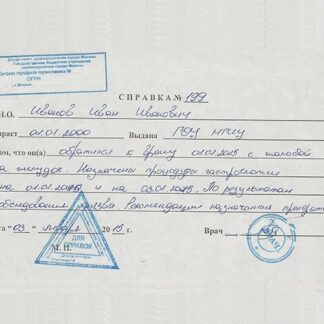 Департамент здравоохранения города Москвы
Государственное бюджетное учреждение
здравоохранения города Москвы
городская поликлиника №
ОГРН
г. Москва
СПРАВКА № 199
И.О. Иванов Иван Иванович
раст 01.01.2000 Выдана РОУ
ом, что он(а) обратился к врачу 01.01.2015 с жалобой
на желудок. Назначены процедуры гастроскопии
на 01.01.2015 и на 03.01.2015. По результатам
обследования Рекомендации назначенных
та "03" января 2015 г. Врач
М. П.
ДЛЯ
СПРАВОК
ВРАЧ